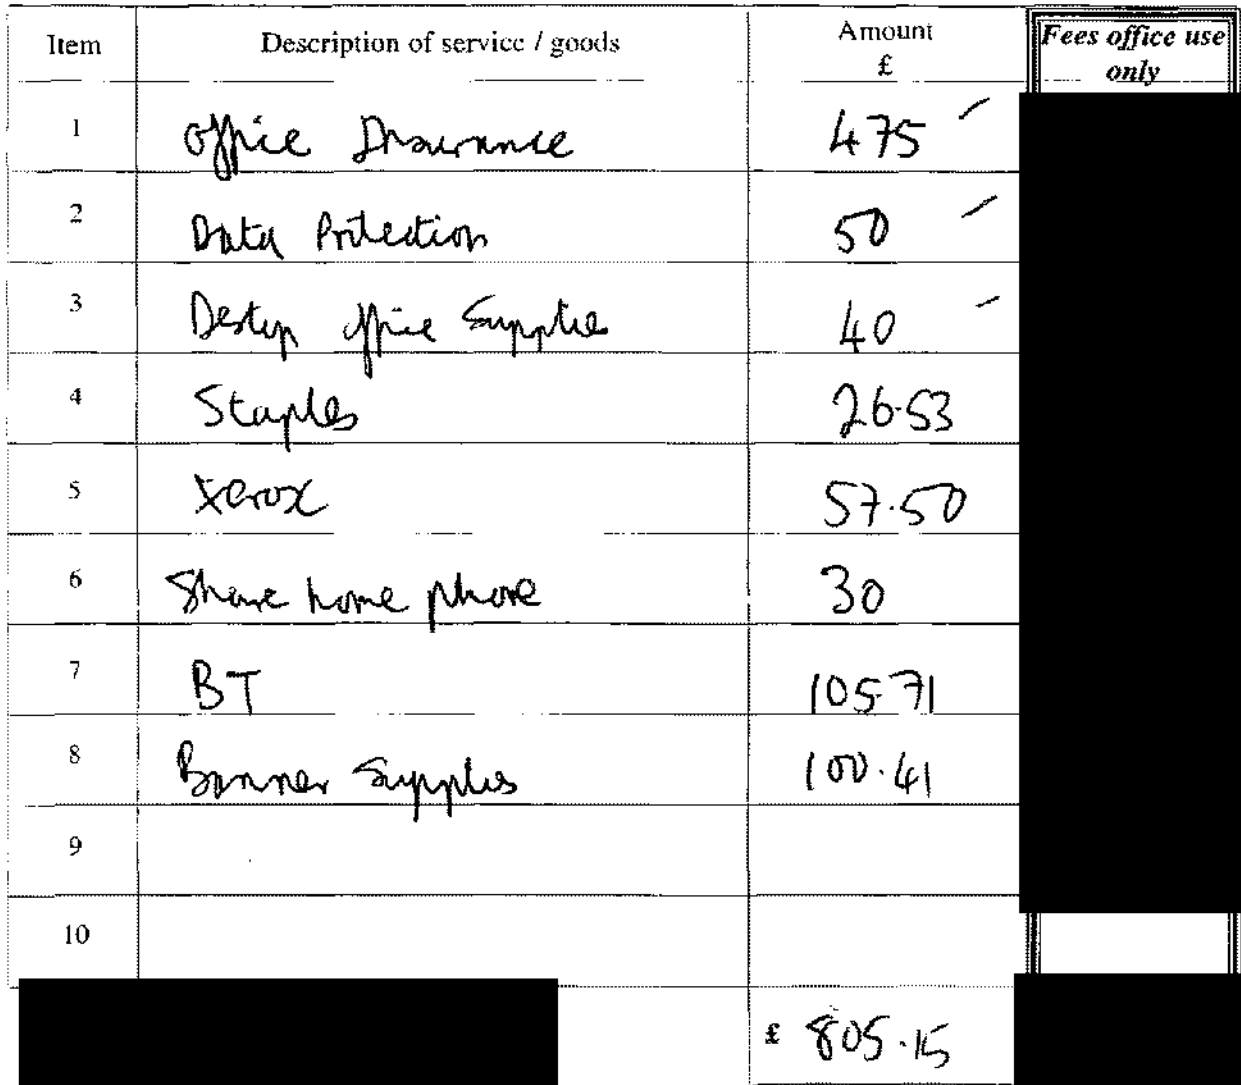 Item Description of service / goods Amount £ Fees office use only
1 Office Insurance 475
2 Data Protection 50
3 office Supplies 40
4 Staples 26.53
5 Xerox 57.50
6 Share home phone 30
7 BT 105.71
8 Banner Supplies 100.41
9
10
£ 805.15